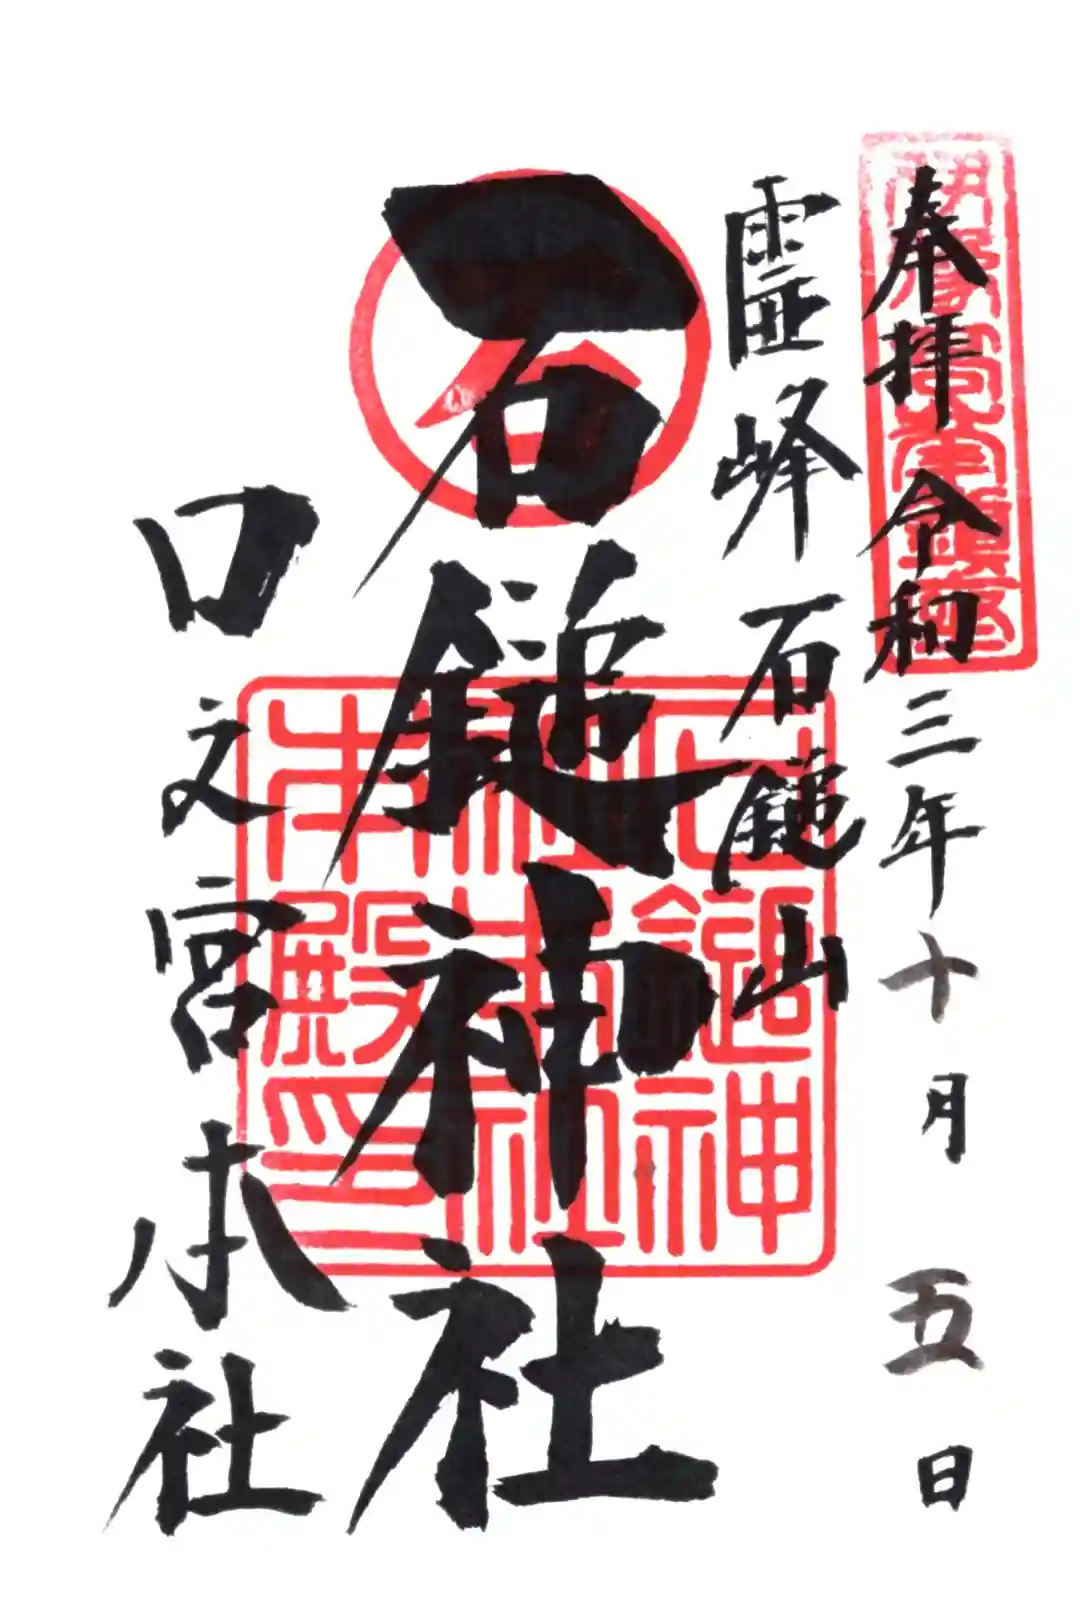 奉拝 令和三年十月五日
霊峰 石鎚山
石鎚神社
口之宮本社
石
石鎚神
社本社
本殿印